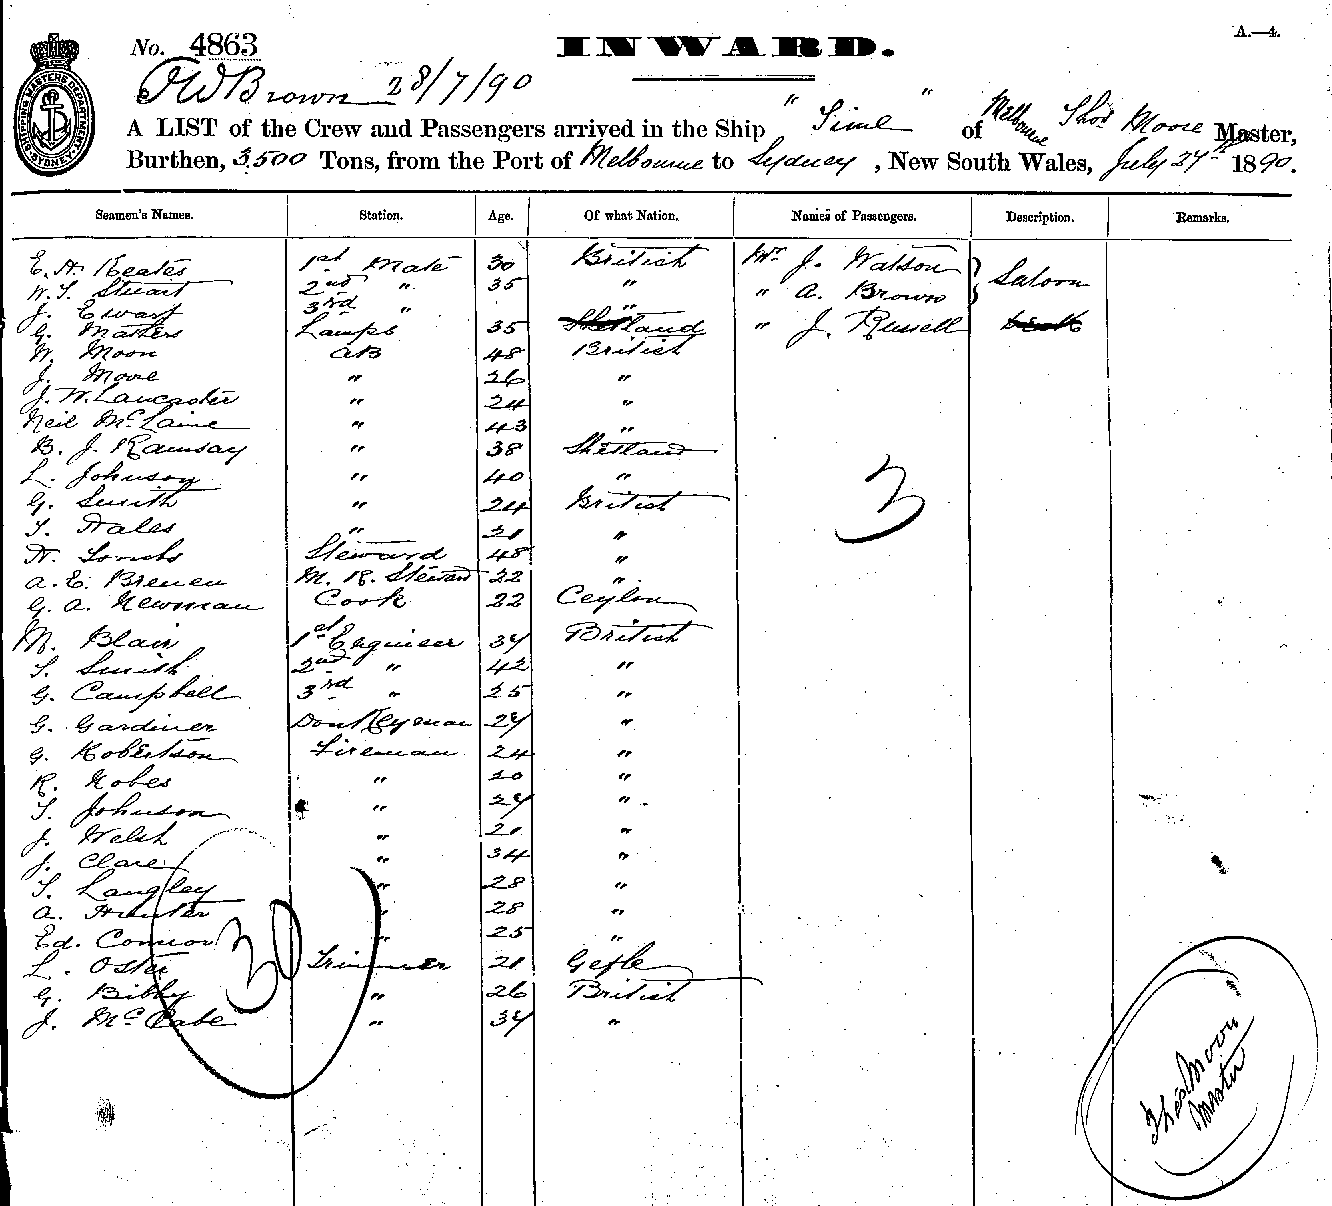 A.—4.
No. 4863
INWARD.
SHIPPING MASTERS DEPARTMENT SYDNEY
Brown 28/7/90
A LIST of the Crew and Passengers arrived in the Ship " Time " of Melbourne Thos Moore Master,
Burthen, 3,500 Tons, from the Port of Melbourne to Sydney, New South Wales, July 27th 1890.
Seamen's Names. Station. Age. Of what Nation. Names of Passengers. Description. Remarks.
E. H. Keates 1st Mate 30 British Mr J. Watson Saloon
W. T. Stuart 2nd " 35 " " A. Brown
J. Ewart 3rd " "
G. Mathers Lamps 35 Shetland " J. Russell
W. Moon AB 48 British
J. Moore " 26 "
J. W. Lancaster " 24 "
Neil McLaine " 43 "
B. J. Ramsay " 38 Shetland
L. Johnson " 40 "
G. Smith " 24 British
T. Hales " 21 "
H. Steward 48 "
A. E. M. R. Steward 22 "
G. A. Newman Cook 22 Ceylon
M. Blair 1st Engineer 34 British
T. Smith 2nd " 42 "
G. Campbell 3rd " 25 "
G. Gardiner Donkeyman 24 "
G. Robertson Fireman 24 "
R. Nobes " 20 "
T. Johnson " 24 "
J. Welsh " 21 "
J. Clare " 34 "
T. Langley " 28 "
A. Hunter " 28 "
Ed. Connor " 25 "
L. Oster Trimmer 21 Gefle
G. Bibby " 26 British
J. McCabe " 34 "
3
30
Thos Moore
Master